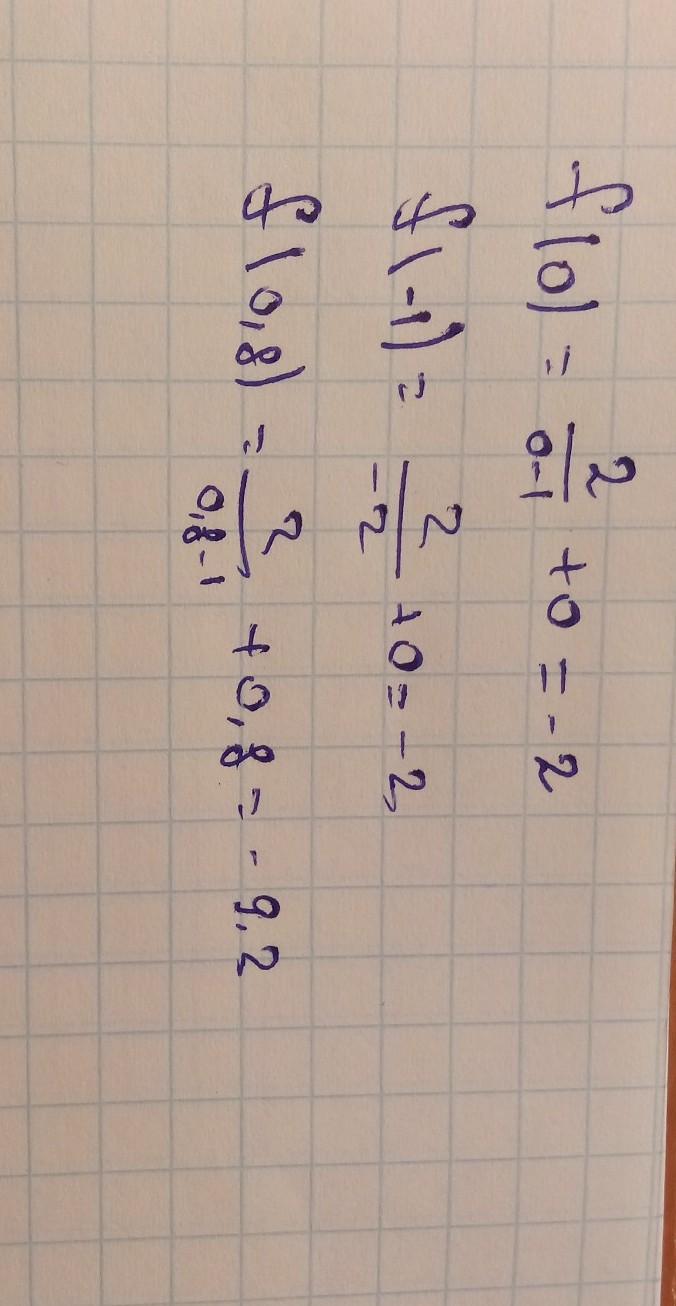 f(0) = 2/(0-1) + 0 = -2
f(-1) = 2/(-2) + 0 = -2
f(0,8) = 2/(0,8-1) + 0,8 = -9.2